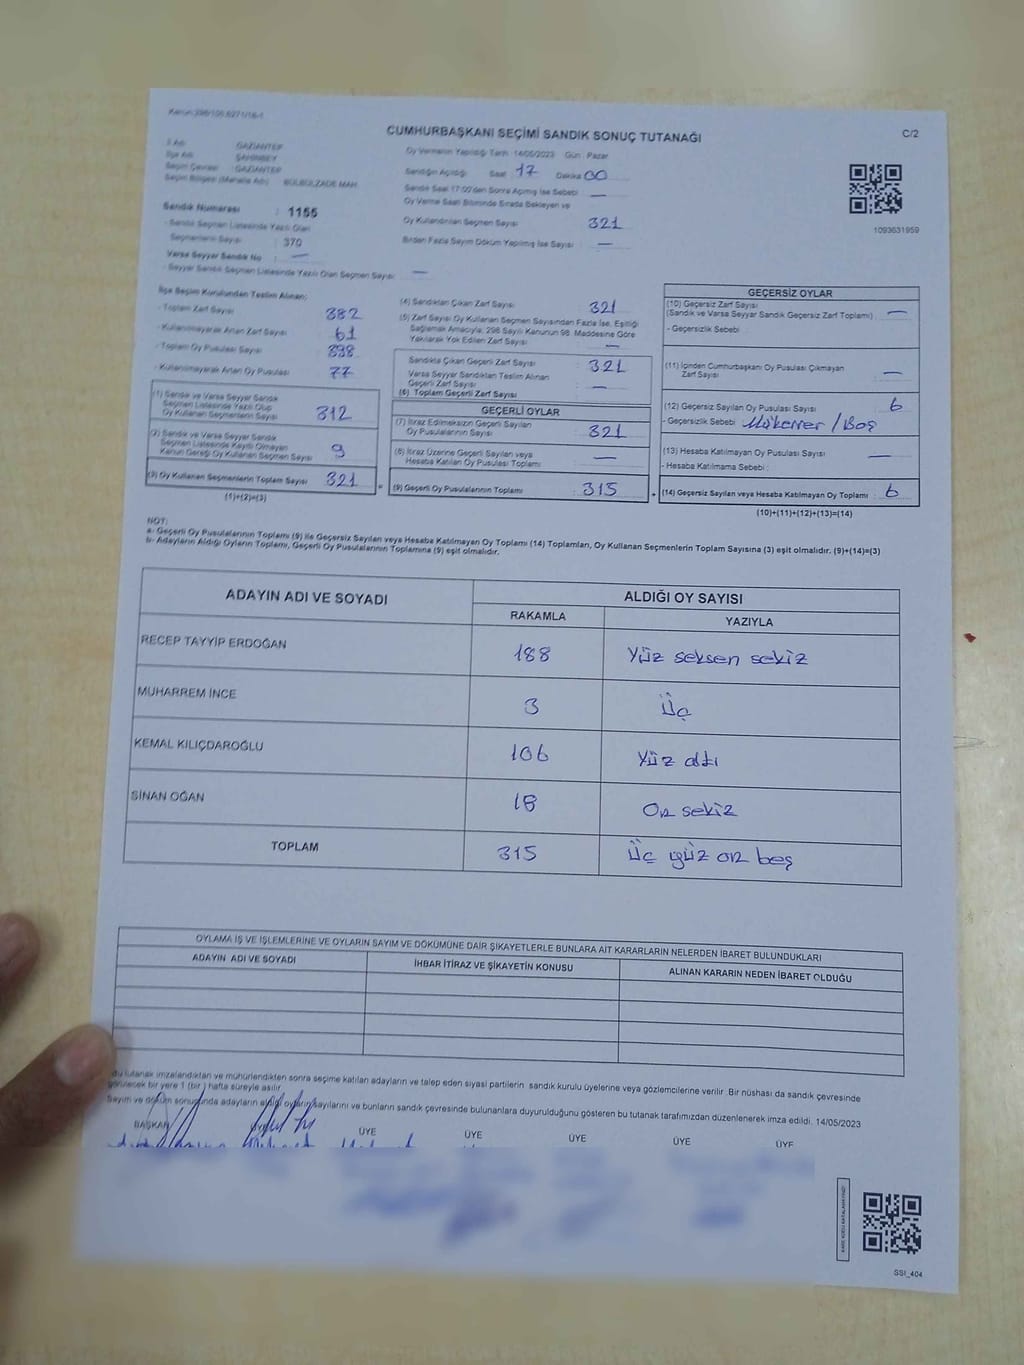 Kanun:298/105,6271/18-1
CUMHURBAŞKANI SEÇİMİ SANDIK SONUÇ TUTANAĞI
C/2
İl Adı : GAZİANTEP
İlçe Adı : ŞAHİNBEY
Seçim Çevresi : GAZİANTEP
Seçim Bölgesi (Mahalle Adı) : BÜLBÜLZADE MAH.
Oy Vermenin Yapıldığı Tarih : 14/05/2023 Gün : Pazar
Sandığın Açıldığı Saat : 17 Dakika : 00
Sandık Saat 17:00'den Sonra Açılmış İse Sebebi : —
Oy Verme Saati Bitiminde Sırada Bekleyen ve
Oy Kullandırılan Seçmen Sayısı : 321
Birden Fazla Sayım Döküm Yapılmış İse Sayısı : —
1093631959
Sandık Numarası : 1155
- Sandık Seçmen Listesinde Yazılı Olan
Seçmenlerin Sayısı : 370
Varsa Seyyar Sandık No : —
- Seyyar Sandık Seçmen Listesinde Yazılı Olan Seçmen Sayısı : —
İlçe Seçim Kurulundan Teslim Alınan;
- Toplam Zarf Sayısı : 382
- Kullanılmayarak Artan Zarf Sayısı : 61
- Toplam Oy Pusulası Sayısı : 398
- Kullanılmayarak Artan Oy Pusulası : 77
(1) Sandık ve Varsa Seyyar Sandık
Seçmen Listesinde Yazılı Olup
Oy Kullanan Seçmenlerin Sayısı : 312
(2) Sandık ve Varsa Seyyar Sandık
Seçmen Listesinde Kayıtlı Olmayan
Kanun Gereği Oy Kullanan Seçmen Sayısı : 9
(3) Oy Kullanan Seçmenlerin Toplam Sayısı : 321
(1)+(2)=(3)
(4) Sandıktan Çıkan Zarf Sayısı : 321
(5) Zarf Sayısı Oy Kullanan Seçmen Sayısından Fazla İse, Eşitliği
Sağlamak Amacıyla; 298 Sayılı Kanunun 98. Maddesine Göre
Yakılarak Yok Edilen Zarf Sayısı : —
Sandıkta Çıkan Geçerli Zarf Sayısı : 321
Varsa Seyyar Sandıktan Teslim Alınan
Geçerli Zarf Sayısı : —
(6) Toplam Geçerli Zarf Sayısı :
GEÇERLİ OYLAR
(7) İtiraz Edilmeksizin Geçerli Sayılan
Oy Pusulalarının Sayısı : 321
(8) İtiraz Üzerine Geçerli Sayılan veya
Hesaba Katılan Oy Pusulası Toplamı : —
= (9) Geçerli Oy Pusulalarının Toplamı : 315
GEÇERSİZ OYLAR
(10) Geçersiz Zarf Sayısı
(Sandık ve Varsa Seyyar Sandık Geçersiz Zarf Toplamı) : —
- Geçersizlik Sebebi :
(11) İçinden Cumhurbaşkanı Oy Pusulası Çıkmayan
Zarf Sayısı : —
(12) Geçersiz Sayılan Oy Pusulası Sayısı : 6
- Geçersizlik Sebebi : Mükerrer / Boş
(13) Hesaba Katılmayan Oy Pusulası Sayısı : —
- Hesaba Katılmama Sebebi :
+ (14) Geçersiz Sayılan veya Hesaba Katılmayan Oy Toplamı : 6
(10)+(11)+(12)+(13)=(14)
NOT:
a- Geçerli Oy Pusulalarının Toplamı (9) ile Geçersiz Sayılan veya Hesaba Katılmayan Oy Toplamı (14) Toplamları, Oy Kullanan Seçmenlerin Toplam Sayısına (3) eşit olmalıdır. (9)+(14)=(3)
b- Adayların Aldığı Oyların Toplamı, Geçerli Oy Pusulalarının Toplamına (9) eşit olmalıdır.
ADAYIN ADI VE SOYADI
ALDIĞI OY SAYISI
RAKAMLA YAZIYLA
RECEP TAYYİP ERDOĞAN 188 Yüz seksen sekiz
MUHARREM İNCE 3 Üç
KEMAL KILIÇDAROĞLU 106 Yüz altı
SİNAN OĞAN 18 On sekiz
TOPLAM 315 Üç yüz on beş
OYLAMA İŞ VE İŞLEMLERİNE VE OYLARIN SAYIM VE DÖKÜMÜNE DAİR ŞİKAYETLERLE BUNLARA AİT KARARLARIN NELERDEN İBARET BULUNDUKLARI
ADAYIN ADI VE SOYADI İHBAR İTİRAZ VE ŞİKAYETİN KONUSU ALINAN KARARIN NEDEN İBARET OLDUĞU
Bu tutanak imzalandıktan ve mühürlendikten sonra seçime katılan adayların ve talep eden siyasi partilerin sandık kurulu üyelerine veya gözlemcilerine verilir. Bir nüshası da sandık çevresinde
görülecek bir yere 1 (bir) hafta süreyle asılır.
Sayım ve döküm sonucunda adayların aldığı oyların sayılarını ve bunların sandık çevresinde bulunanlara duyurulduğunu gösteren bu tutanak tarafımızdan düzenlenerek imza edildi. 14/05/2023
BAŞKAN ÜYE ÜYE ÜYE ÜYE ÜYE
SSİ_404